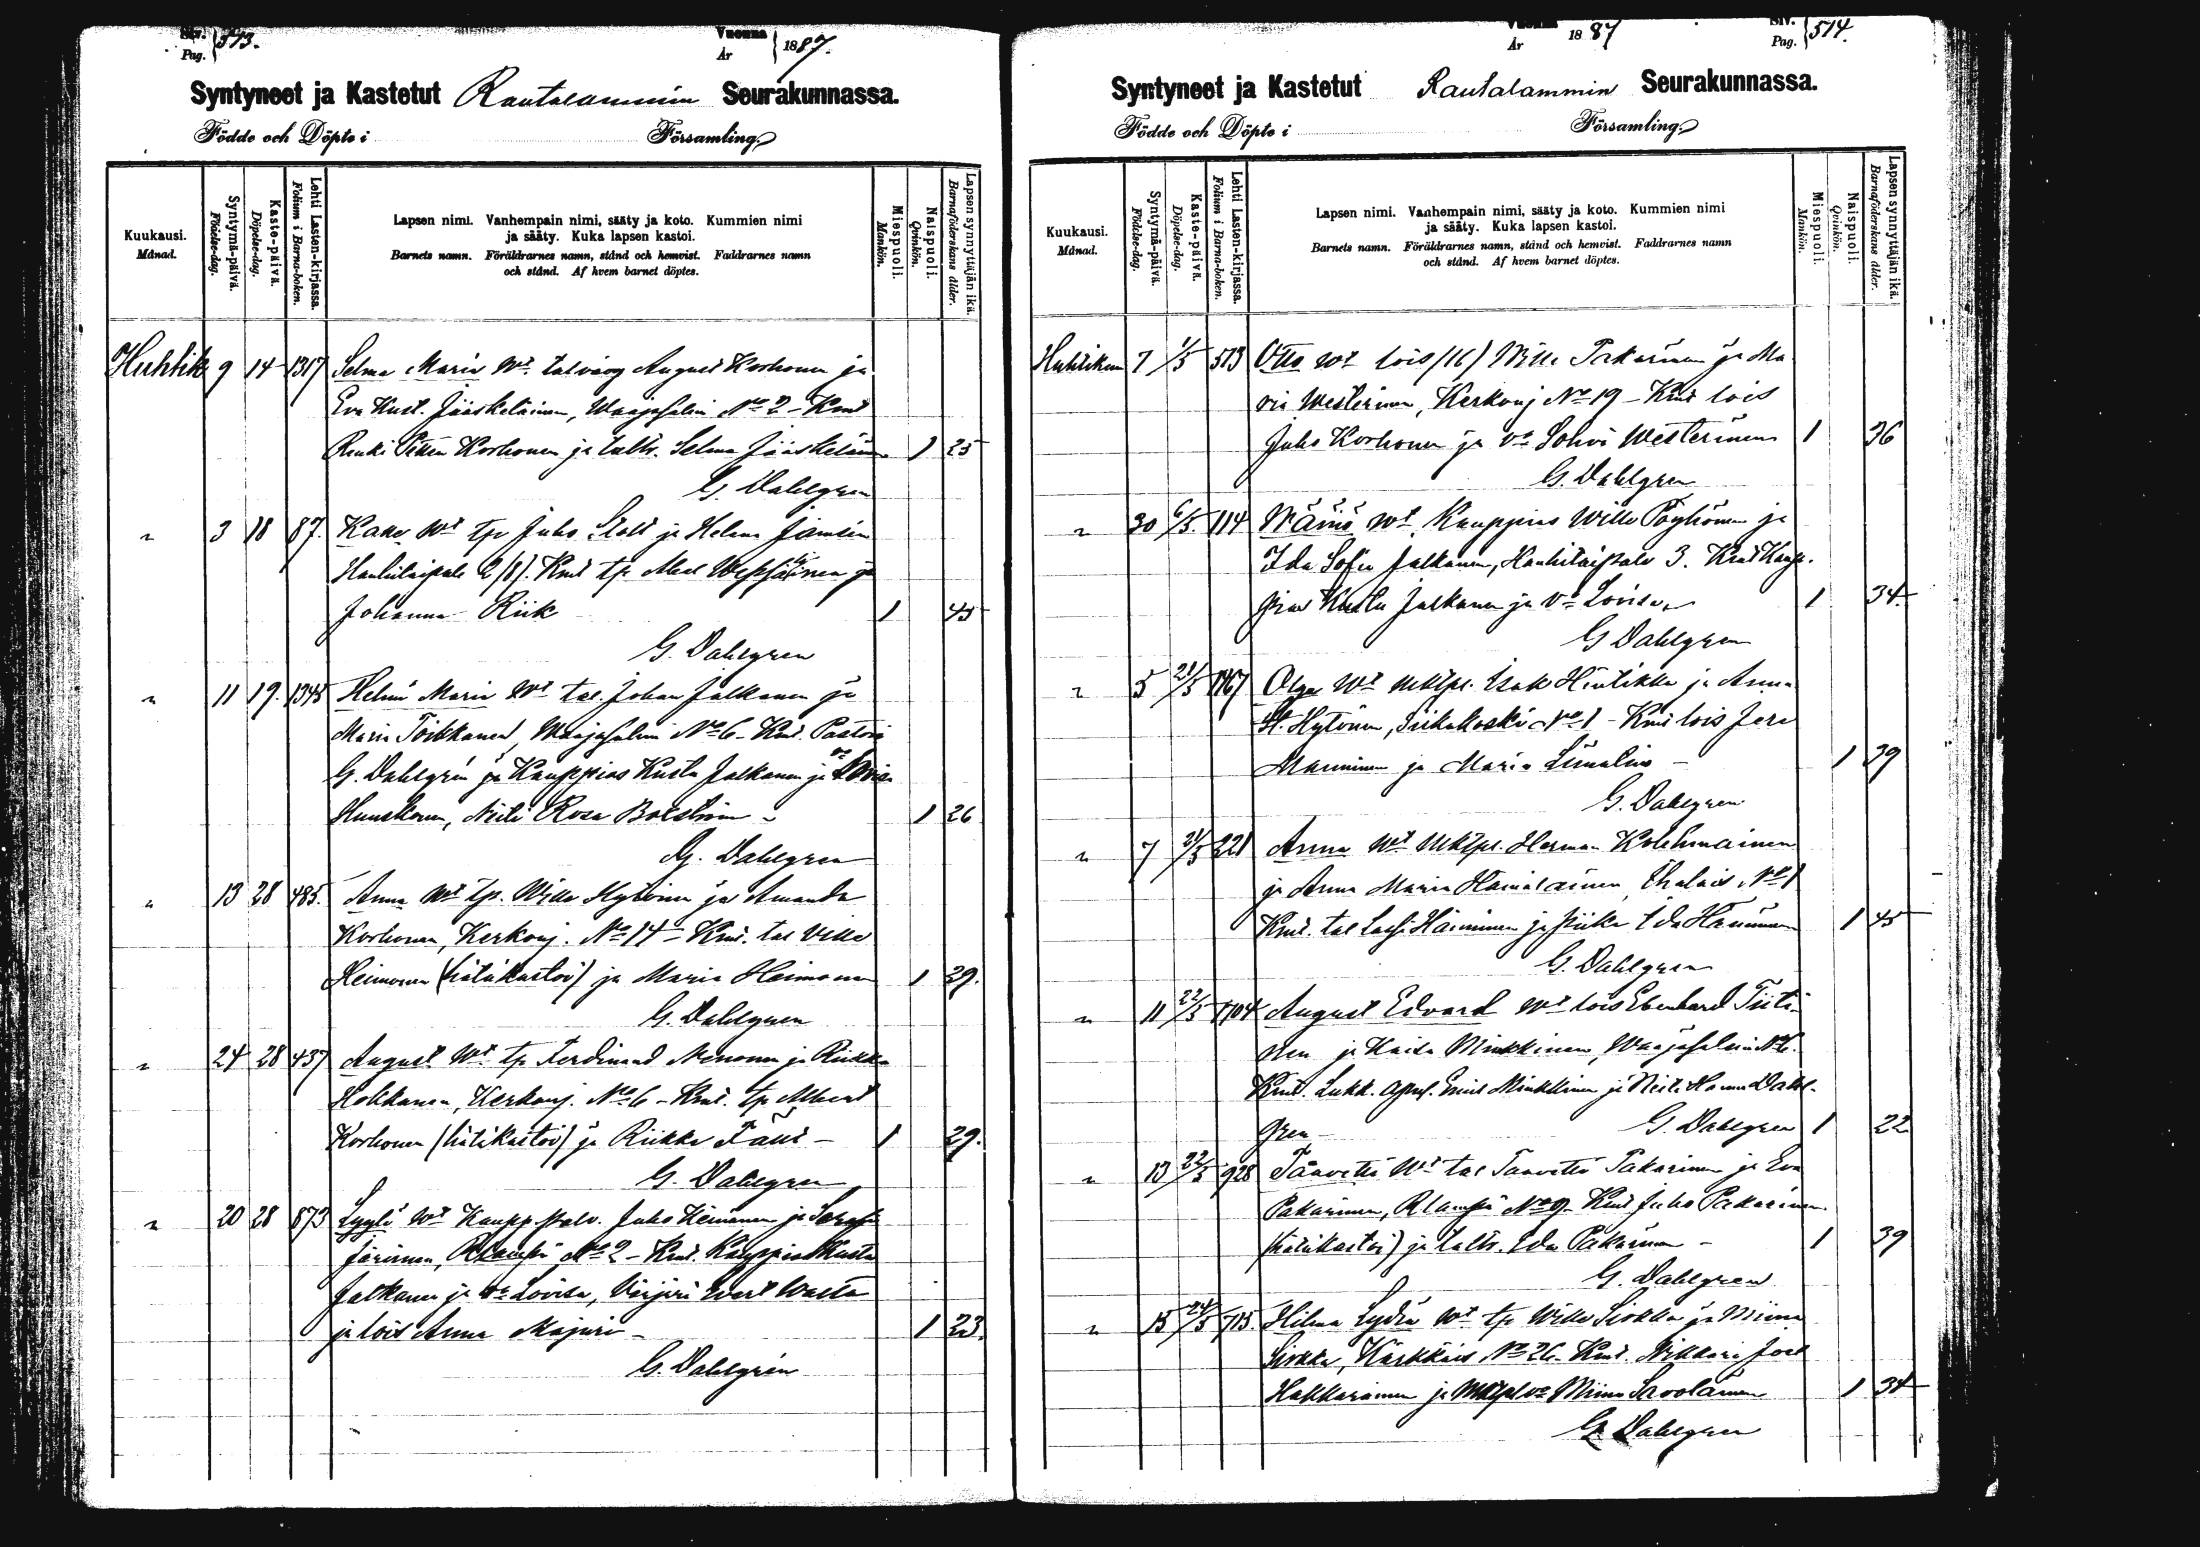 Siv. Pag. 573.
Vuonna År 1887.
Syntyneet ja Kastetut Rautalammin Seurakunnassa.
Födde och Döpte i Församling.
Kuukausi. Månad.
Syntymä-päivä. Födelse-dag.
Kaste-päivä. Döpelse-dag.
Lehti Lasten-kirjassa. Folium i Barna-boken.
Lapsen nimi. Vanhempain nimi, sääty ja koto. Kummien nimi
ja sääty. Kuka lapsen kastoi.
Barnets namn. Föräldrarnes namn, stånd och hemvist. Faddrarnes namn
och stånd. Af hvem barnet döptes.
Miespuoli. Mankön.
Naispuoli. Qvinkön.
Lapsen synnyttäjän ikä. Barnaföderskans ålder.
Huhtik 9 14 1317 Selma Maria Wt. talväv August Korhonen ja
Eva Kust. Jääskeläinen, Waajasalmi No 2 - Kmt
Renki Korhonen ja taltr. Selma Jääskeläinen 1 25
G. Dahlgren
" 3 18 87. Wt tp Juho ja Helena
Hanhitaipale 2/8/. Kmt tp ja
Johanna Riik 1 45
G. Dahlgren
" 11 19. 1345 Helmi Maria Wt tal. Johan Jalkanen ja
Maria Toikkanen, Waajasalmi No 6 - Kmt. Pastori
G. Dahlgrén ja Kauppias Kusta Jalkanen ja vo Lovisa
Neiti Rosa 1 26
G. Dahlgren
" 13 28 485. Anna Wt tp. Wille Hytönen ja Amanda
Korhonen, Kerkonj. No 14 - Kmt. tal Wille
Heimonen (hätäkastoi) ja Maria Heimonen 1 29.
G. Dahlgren
" 24 28 437 August Wt tp Ferdinand Nenonen ja Riikka
Hokkanen, Kerkonj. No 6 - Kmt. tp Albert
Korhonen (hätäkastoi) ja Riikka 1 29.
G. Dahlgren
" 20 28 873 Lyyli Wt Kaupp. palv. Juho Heimonen ja
Järvinen, Rlampi No 2 - Kmt. Kauppias Kusta
Jalkanen ja vo Lovisa, Evert
ja lois Anna Majuri - 1 23.
G. Dahlgrén
Siv. Pag. 514.
Vuonna År 1887
Syntyneet ja Kastetut Rautalammin Seurakunnassa.
Födde och Döpte i Församling.
Kuukausi. Månad.
Syntymä-päivä. Födelse-dag.
Kaste-päivä. Döpelse-dag.
Lehti Lasten-kirjassa. Folium i Barna-boken.
Lapsen nimi. Vanhempain nimi, sääty ja koto. Kummien nimi
ja sääty. Kuka lapsen kastoi.
Barnets namn. Föräldrarnes namn, stånd och hemvist. Faddrarnes namn
och stånd. Af hvem barnet döptes.
Miespuoli. Mankön.
Naispuoli. Qvinkön.
Lapsen synnyttäjän ikä. Barnaföderskans ålder.
Huhtikuu 7 1/5 513 Otto Wt lois /16/ Wille Pakarinen ja Ma
ria Westerinen, Kerkonj No 19 - Kmt lois
Juho Korhonen ja vo Sohvi Westerinen 1 36
G. Dahlgren
" 30 6/5. 114 Wäinö Wt. Kauppias Wille Pöyhönen ja
Ida Sofia Jalkanen, Hanhitaipale 3. Kmt Kaup.
pias Kusta Jalkanen ja vo Lovisa 1 34.
G Dahlgren
" 5 21/5 1167 Olga Wt mktpl. Isak Hintikka ja Anna
H. Hytönen, Siikakoski No 1 - Kmt lois Jere
Manninen ja Maria Liimatain - 1 39
G. Dahlgren
" 7 21/5 221 Anna Wt Mktpl. Herman Kolehmainen
ja Anna Maria Hämäläinen, No 1
Kmt. tal Lassi Hänninen ja piika Ida Hänninen 1 45
G. Dahlgren
" 11 22/5 1104 August Edvard Wt lois Eberhard Tiiti
nen ja Kaisa Minkkinen, Waajasalmi No 6.
Kmt. Lukk. apul. Emil Minkkinen ja Neiti Hanna Dahl-
gren - G Dahlgren 1 22
" 13 22/5 928 Taavetti Wt tal Taavetti Pakarinen ja Eva
Pakarinen, Rlampi No 9. Kmt Juho Pakarinen
(hätäkastoi) ja taltr. Ida Pakarinen - 1 39
G. Dahlgren
" 15 24/5 715. Hilma Lydia Wt tp Wille Sirkka ja Miina
Sirkka, Kärkkäis No 26. Kmt. Nikkari Joel
Hakkarainen ja Mktpl vo Miina Savolainen 1 34
G. Dahlgren